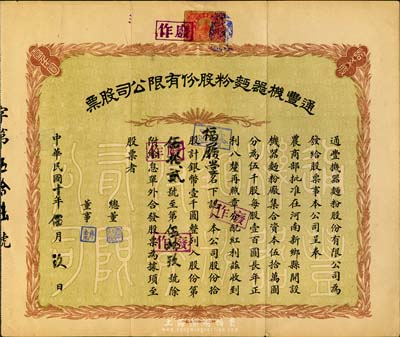 作廢
通豐機器麵粉股份有限公司股票
通豐機器麵粉股份有限公司為
發給股票事本公司呈奉
農商部批准在河南新鄉縣開設
機器麵粉廠集合資本伍拾萬圓
分為伍千股每股壹百圓長年正
利八釐再照章分配紅利茲收到
福 堂名下認入本公司股份拾
股計銀幣壹千圓整列入股份第
號至第 號除
附給息票外合發股票為據須至
股票者
總董
董事
中華民國十年 月 玖日
字第 號
作廢
作廢